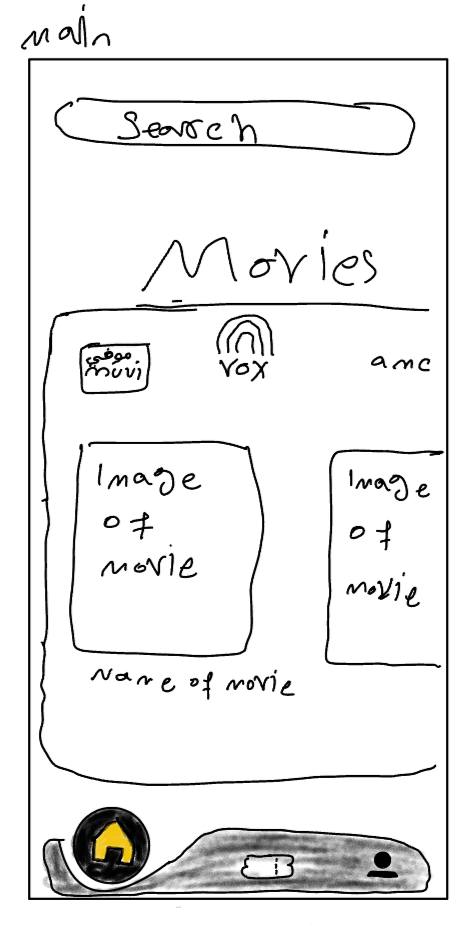 main
Search
Movies
موڤي
muvi
VOX
amc
Image
of
movie
Image
of
movie
Name of movie